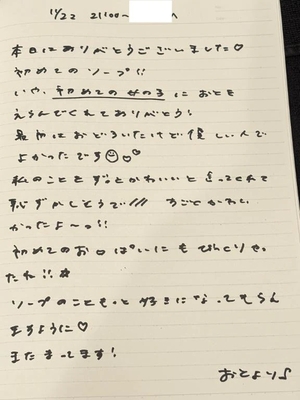 11/22 21:00〜
本日はありがとうございました♡
初めてのソープ!!
いや、初めての女の子におとを
えらんでくれてありがとう!
最初はおどろいたけど優しい人で
よかったです☺♡♡
私のことをずっとかわいいと言ってくれて
恥ずかしそうで/// うごとかわい
かったよ〜っ!!
初めてのお口ぱいにもびっくりや
たね!!☆
ソープのこともっと好きになってもらえ
ますように♡
またまってます!
おとより♪